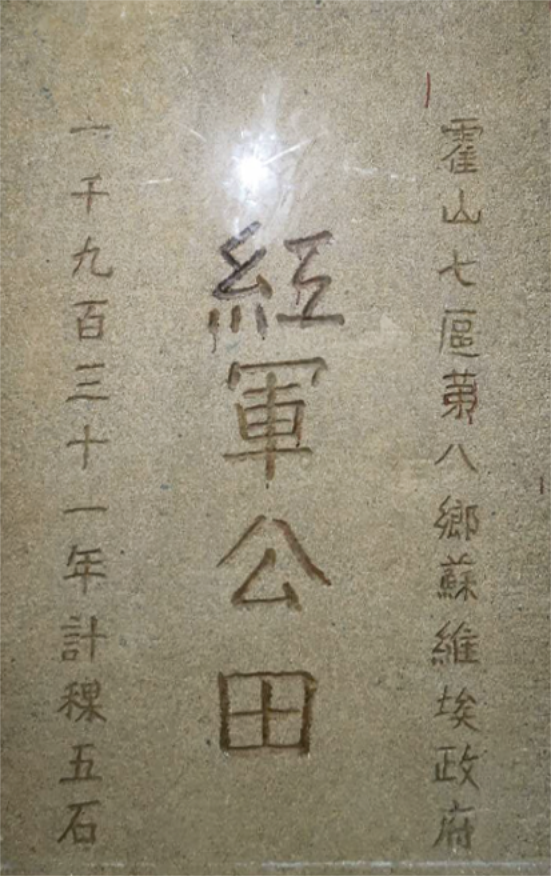 霍山七區第八鄉蘇維埃政府
紅軍公田
一千九百三十一年計稞五石